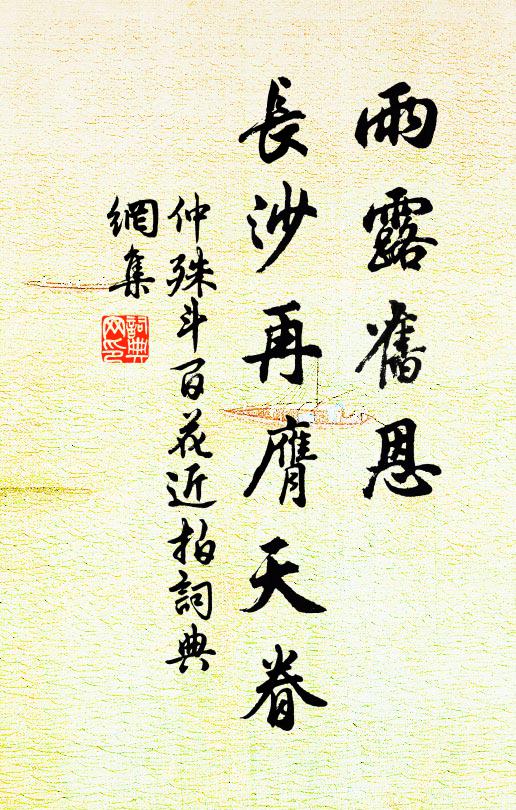 雨露舊恩
長沙再膺天眷
仲殊斗百花近拍詞典
網集
詞典
网印